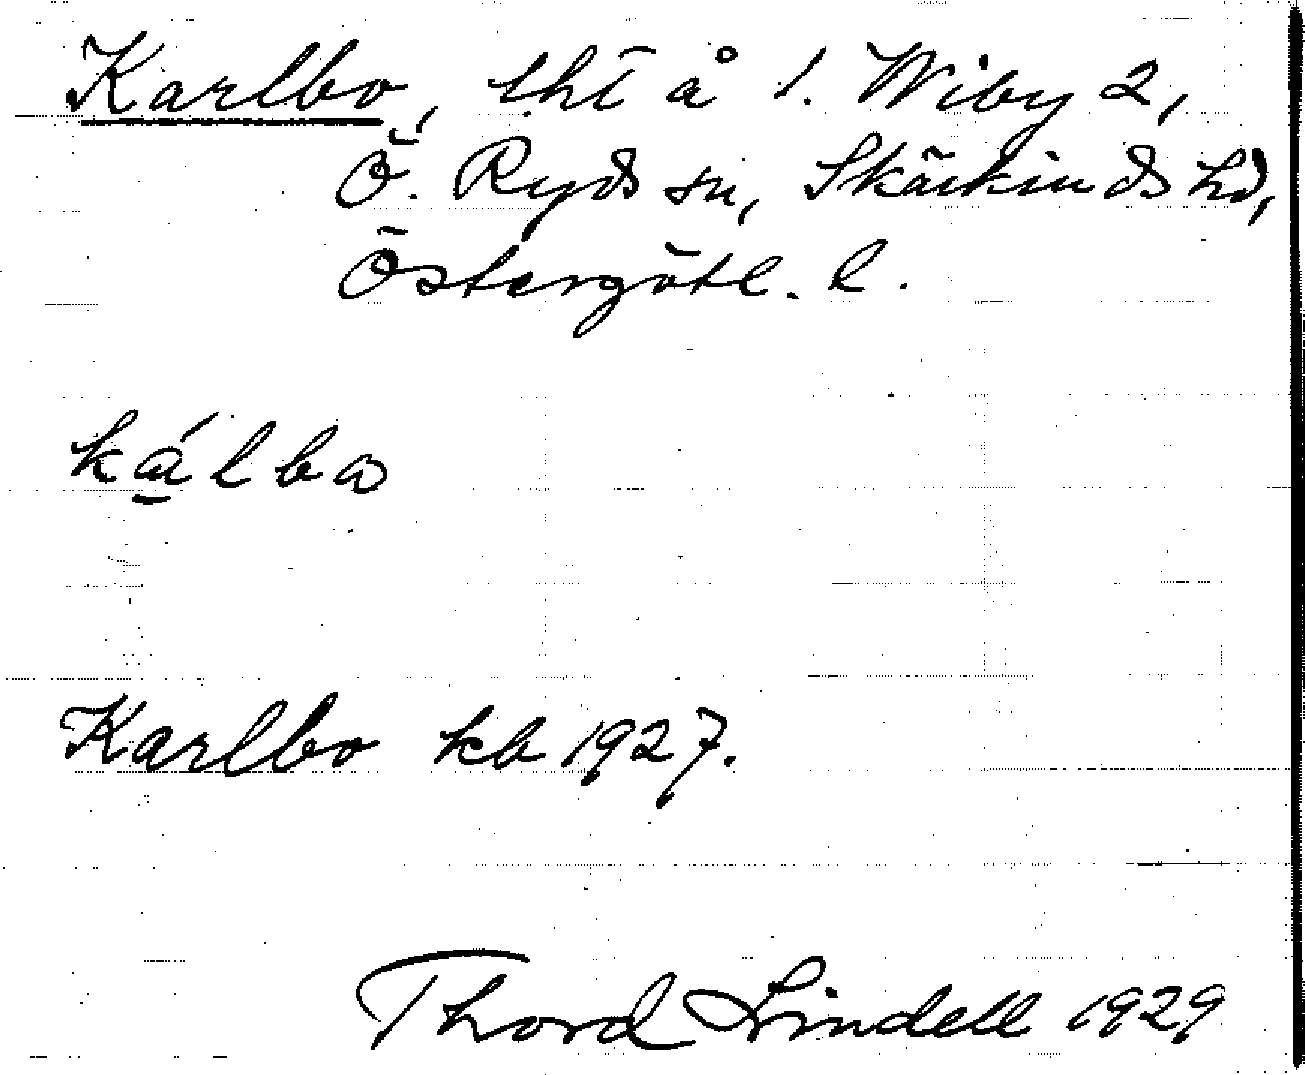 Karlbo, tht å 1. Wiby 2,
Ö. Ryds sn, Skärkinds hd,
Östergötl. l.
kálbω
Karlbo kb 1927.
Thord Lindell 1929